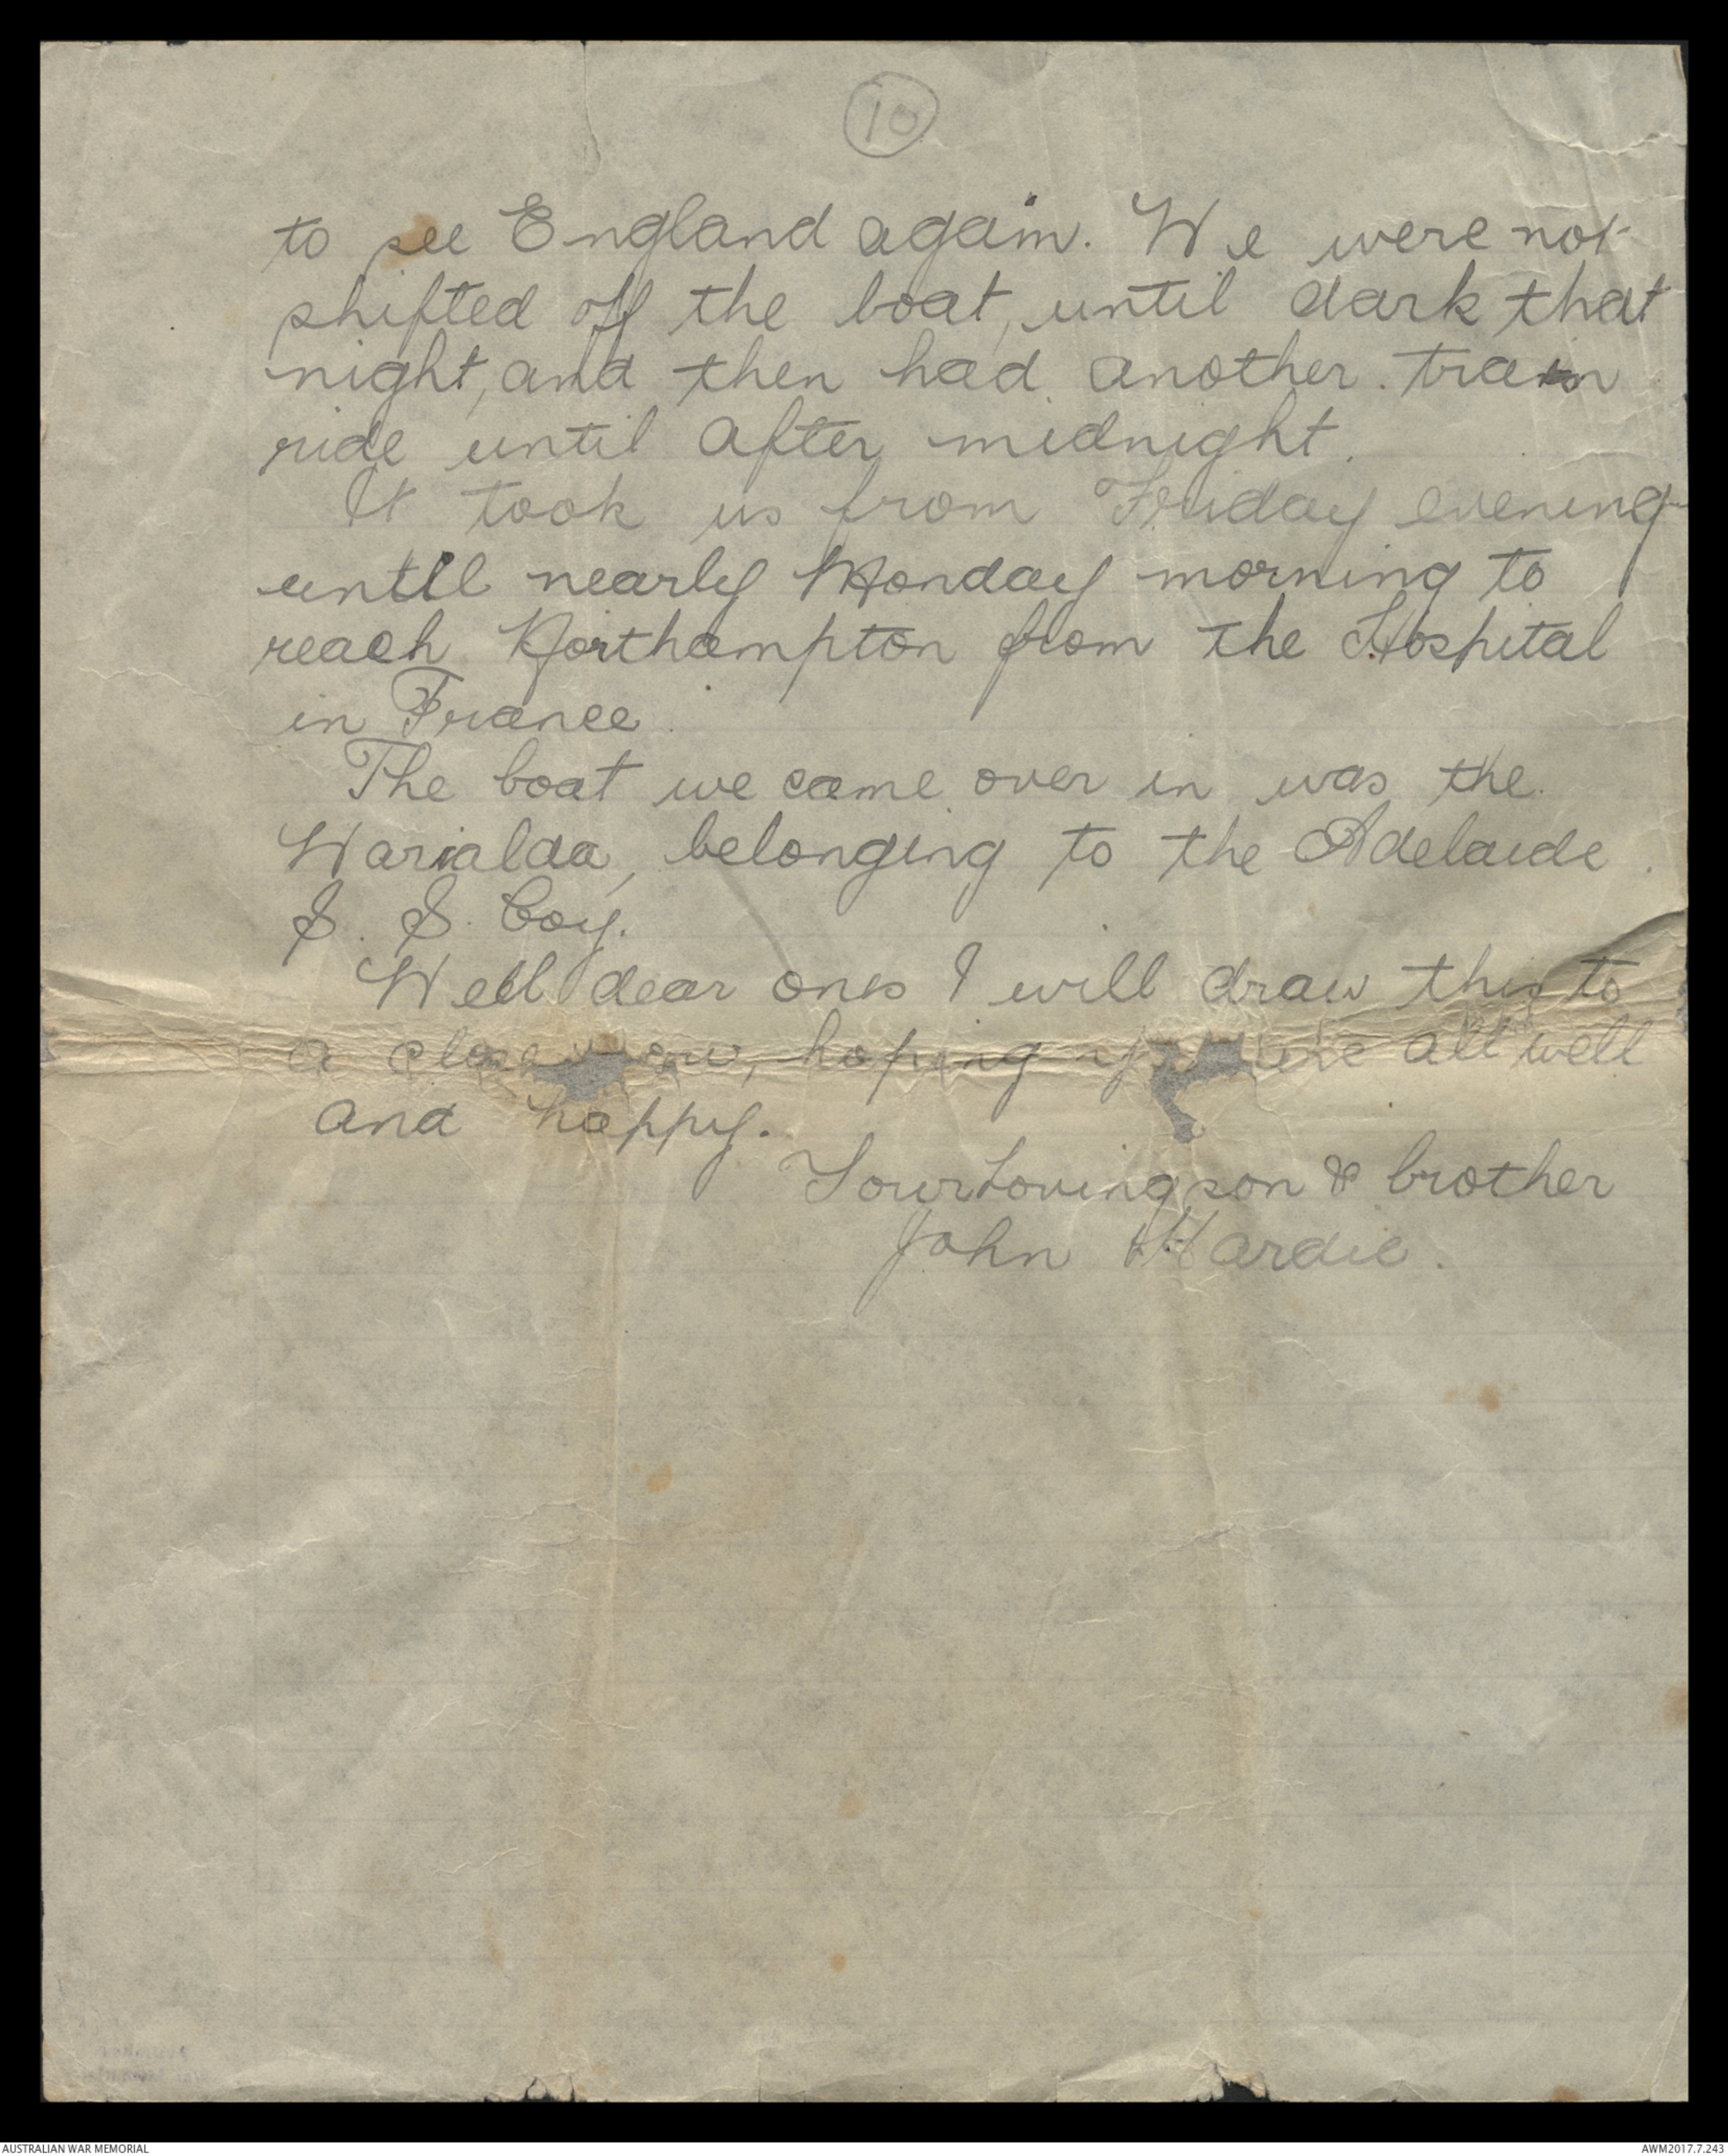 10
to see England again. We were not
shifted off the boat, until dark that
night, and then had another train
ride until after midnight.
It took us from Friday evening
until nearly Monday morning to
reach Northampton from the Hospital
in France.
The boat we came over in was the
Warialda, belonging to the Adelaide
S. S. Coy.
Well dear ones I will draw this to
a close now, hoping you are all well
and happy.
Your Loving son & brother
John Hardie.
AUSTRALIAN WAR MEMORIAL
AWM2017.7.243